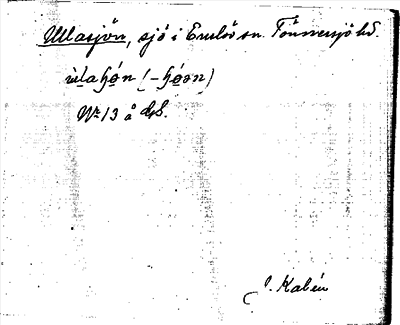 Ullasjön, sjö i Enslöv sn. Tönnersjö hd.
ùlahó̱n (-hó̱ən)
Nr 13 å ds.
J. Kalén